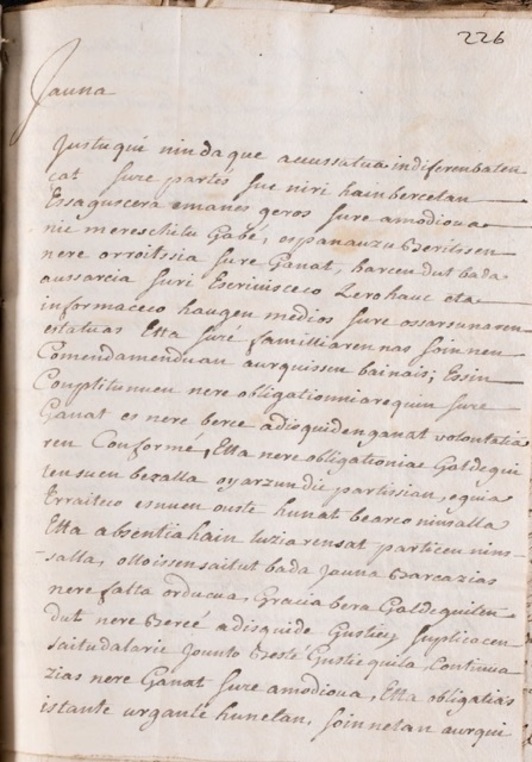 226
Jauna
Justuqui nindaque accussatua indiferenbaten
çat sure partes sue niri hainbercelan
Essaguscera emanes geros sure amodioua
nic mereschitu Gabé, ospanauzu Berilisen
nere orroitssia sure Ganat, harcen dut bada
aussarcia suri Escriuisceco Lerohauc eta
informaceco haugen medios sure ossarsunaren
estatuas Etta suré familliaren nas soin neu
Comendamenduan aurquissen bainais; Essin
Conplitunuen nere obligationniarequin sure
Ganat es nere berce adisquidenganat volontatia
ren Conformé, Etta nere obligationiac Galdequi
ten suen bezalla oyarzundic partissian, eguia
Erraiteco esnuen ouste hunat bearco ninsalla
Etta absentia hain luziarensat particen nins-
-salla, ottoissen saitut bada Jauna Barcazias
nere falta orducua, Gracia bera Galdequiten
dut nere Bercé adisquide Gustiey, suplicacen
saitudalaric Jounto Besté Gustiequila, Continua
zias nere Ganat sure amodioua, Etta obligatias
istante urgante hunetan, soinnetan aurqui